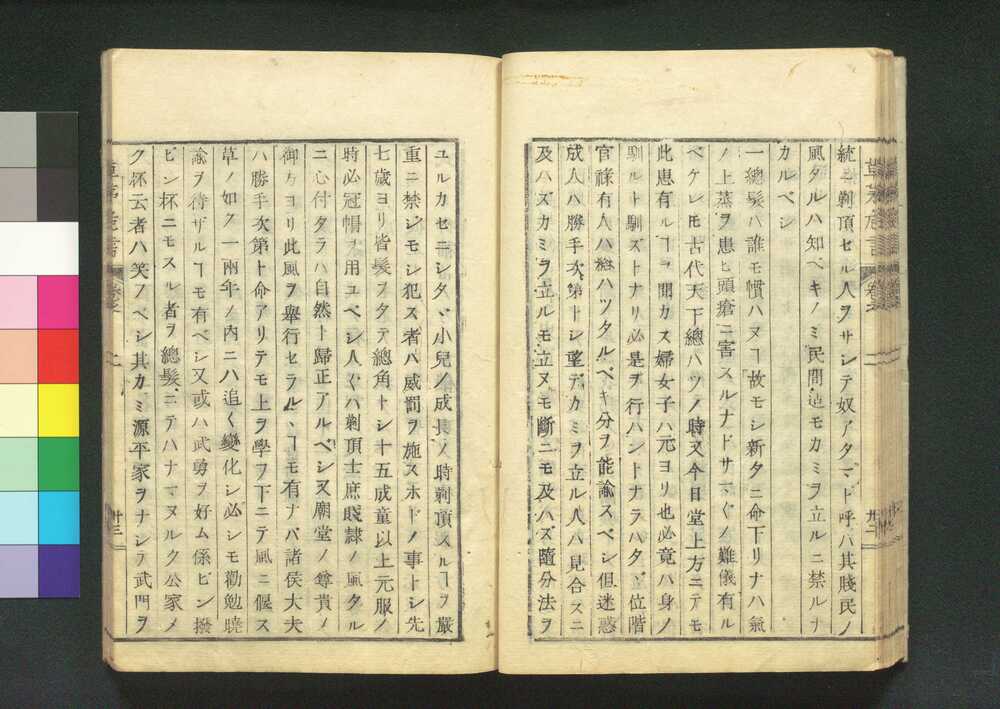 統ニ剃頂セル人ヲサシテ奴アタマト呼ハ其賤民ノ
風タルハ知ベキノミ民間迚モカミヲ立ルニ禁ルナ
カルベシ
一總髮ハ誰モ慣ハヌヿ故モシ新タニ命下リナハ氣
ノ上蒸ヲ患ヒ頭瘡ニ害スルナドサマ〲ノ難儀有ル
ベケレモ古代天下總ハツノ時又今日堂上方ニテモ
此患有ルヿヲ聞カス婦女子ハ元ヨリ也必竟ハ身ノ
馴ルト馴ズトナリ必是ヲ行ハントナラハタヾ位階
官祿有人ハ總ハツタルベキ分ヲ能諭スベシ但迷惑
成人ハ勝手次第トシ望テカミヲ立ル人ハ見合スニ
及ハズカミヲ立ルモ立ヌモ斷ニモ及ハズ隨分法ヲ
草茅危言
卷之
廿二
ユルカセニシタヾ小兒ノ成長ノ時剃頂スルヿヲ嚴
重ニ禁シモシ犯ス者ハ威罰ヲ施スホドノ事トシ先
七歲ヨリ皆髮ヲタテ總角トシ十五成童以上元服ノ
時必冠帽ヲ用ユベシ人々ハ剃頂士庶賤隷ノ風タル
ニ心付タラハ自然ト歸正アルベシ又廟堂ノ尊貴ノ
御方ヨリ此風ヲ舉行セラルヽヿモ有ナバ諸侯大夫
ハ勝手次第ト命アリテモ上ヲ學フ下ニテ風ニ偃ス
草ノ如ク一兩年ノ內ニハ追々變化シ必シモ勸勉曉
諭ヲ待ザルヿモ有ベシ又或ハ武勇ヲ好ム係ビン撥
ビン抔ニモスル者ヲ總髮ニテハナマヌルク公家メ
ク抔云者ハ笑フベシ其カミ源平家ヲナシテ武門ヲ
草茅危言
卷之
廿三